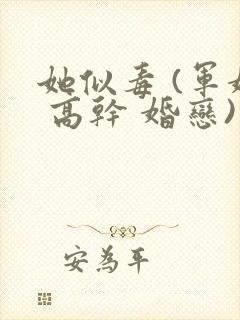 她似毒(軍婚
高幹 婚戀)
安為年